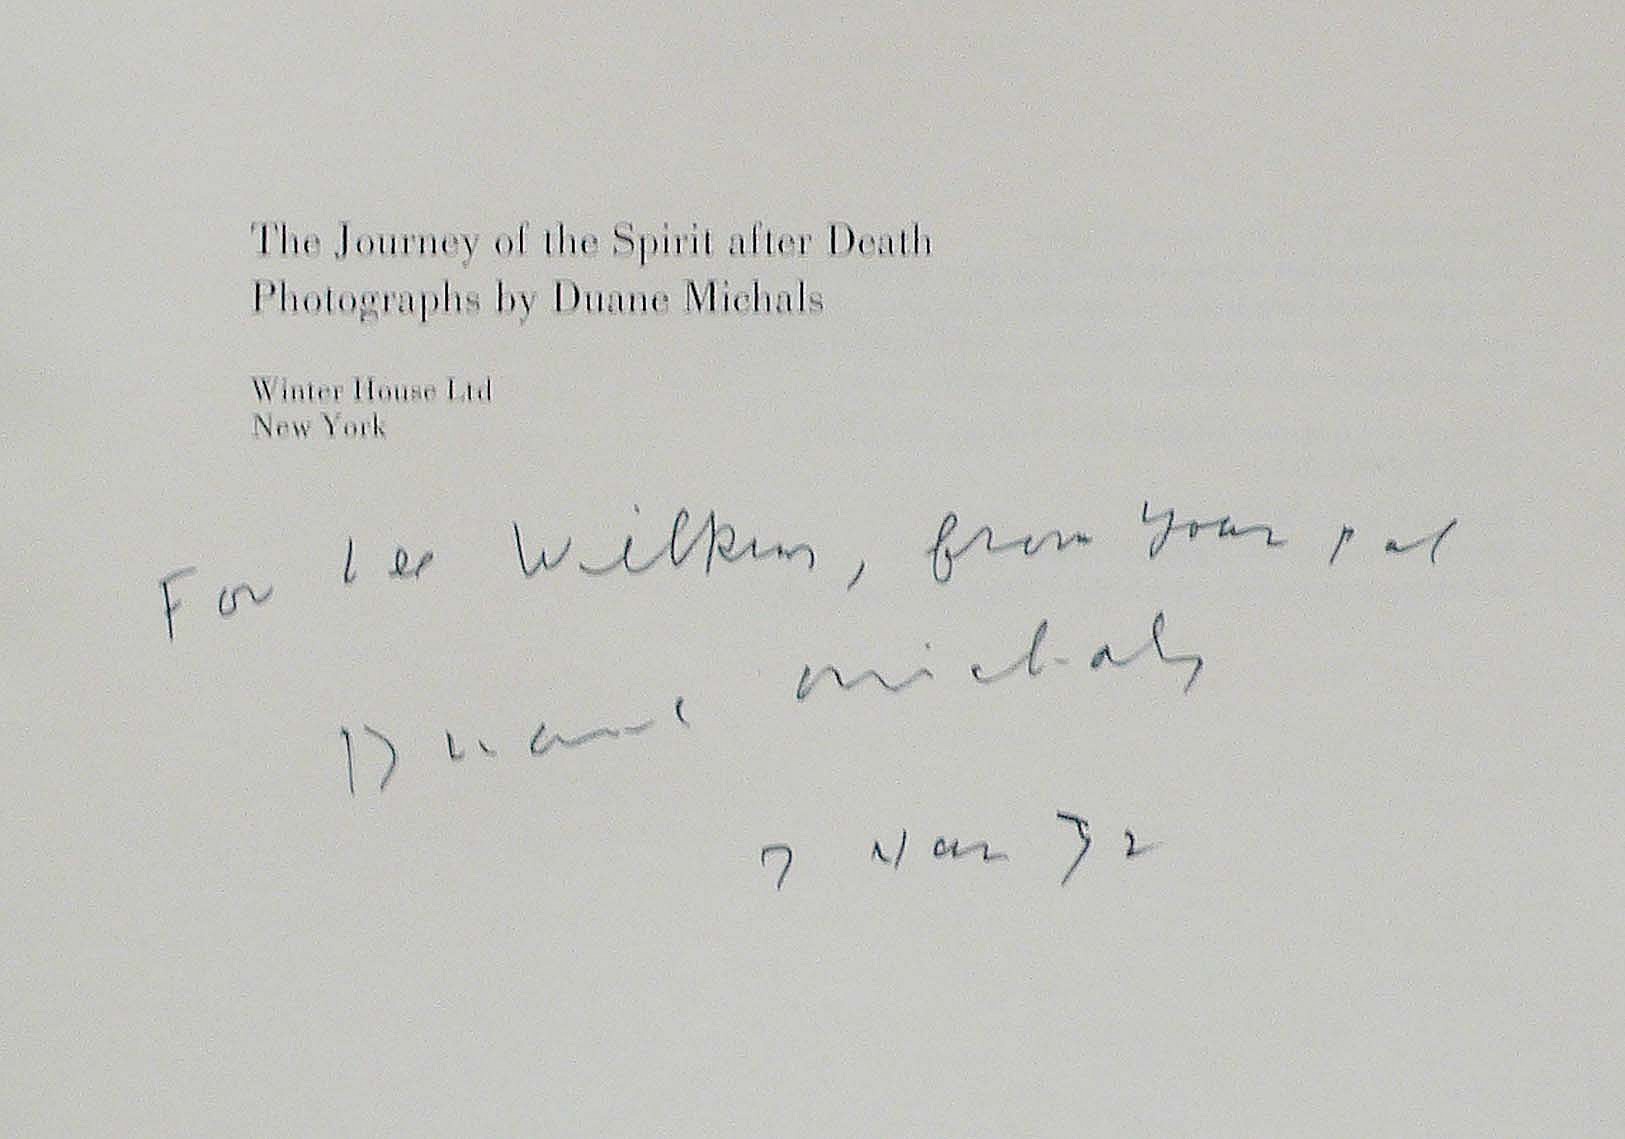 The Journey of the Spirit after Death
Photographs by Duane Michals
Winter House Ltd
New York
For Lee Wilkins, from your pal
Duane Michals
7 Mar 72